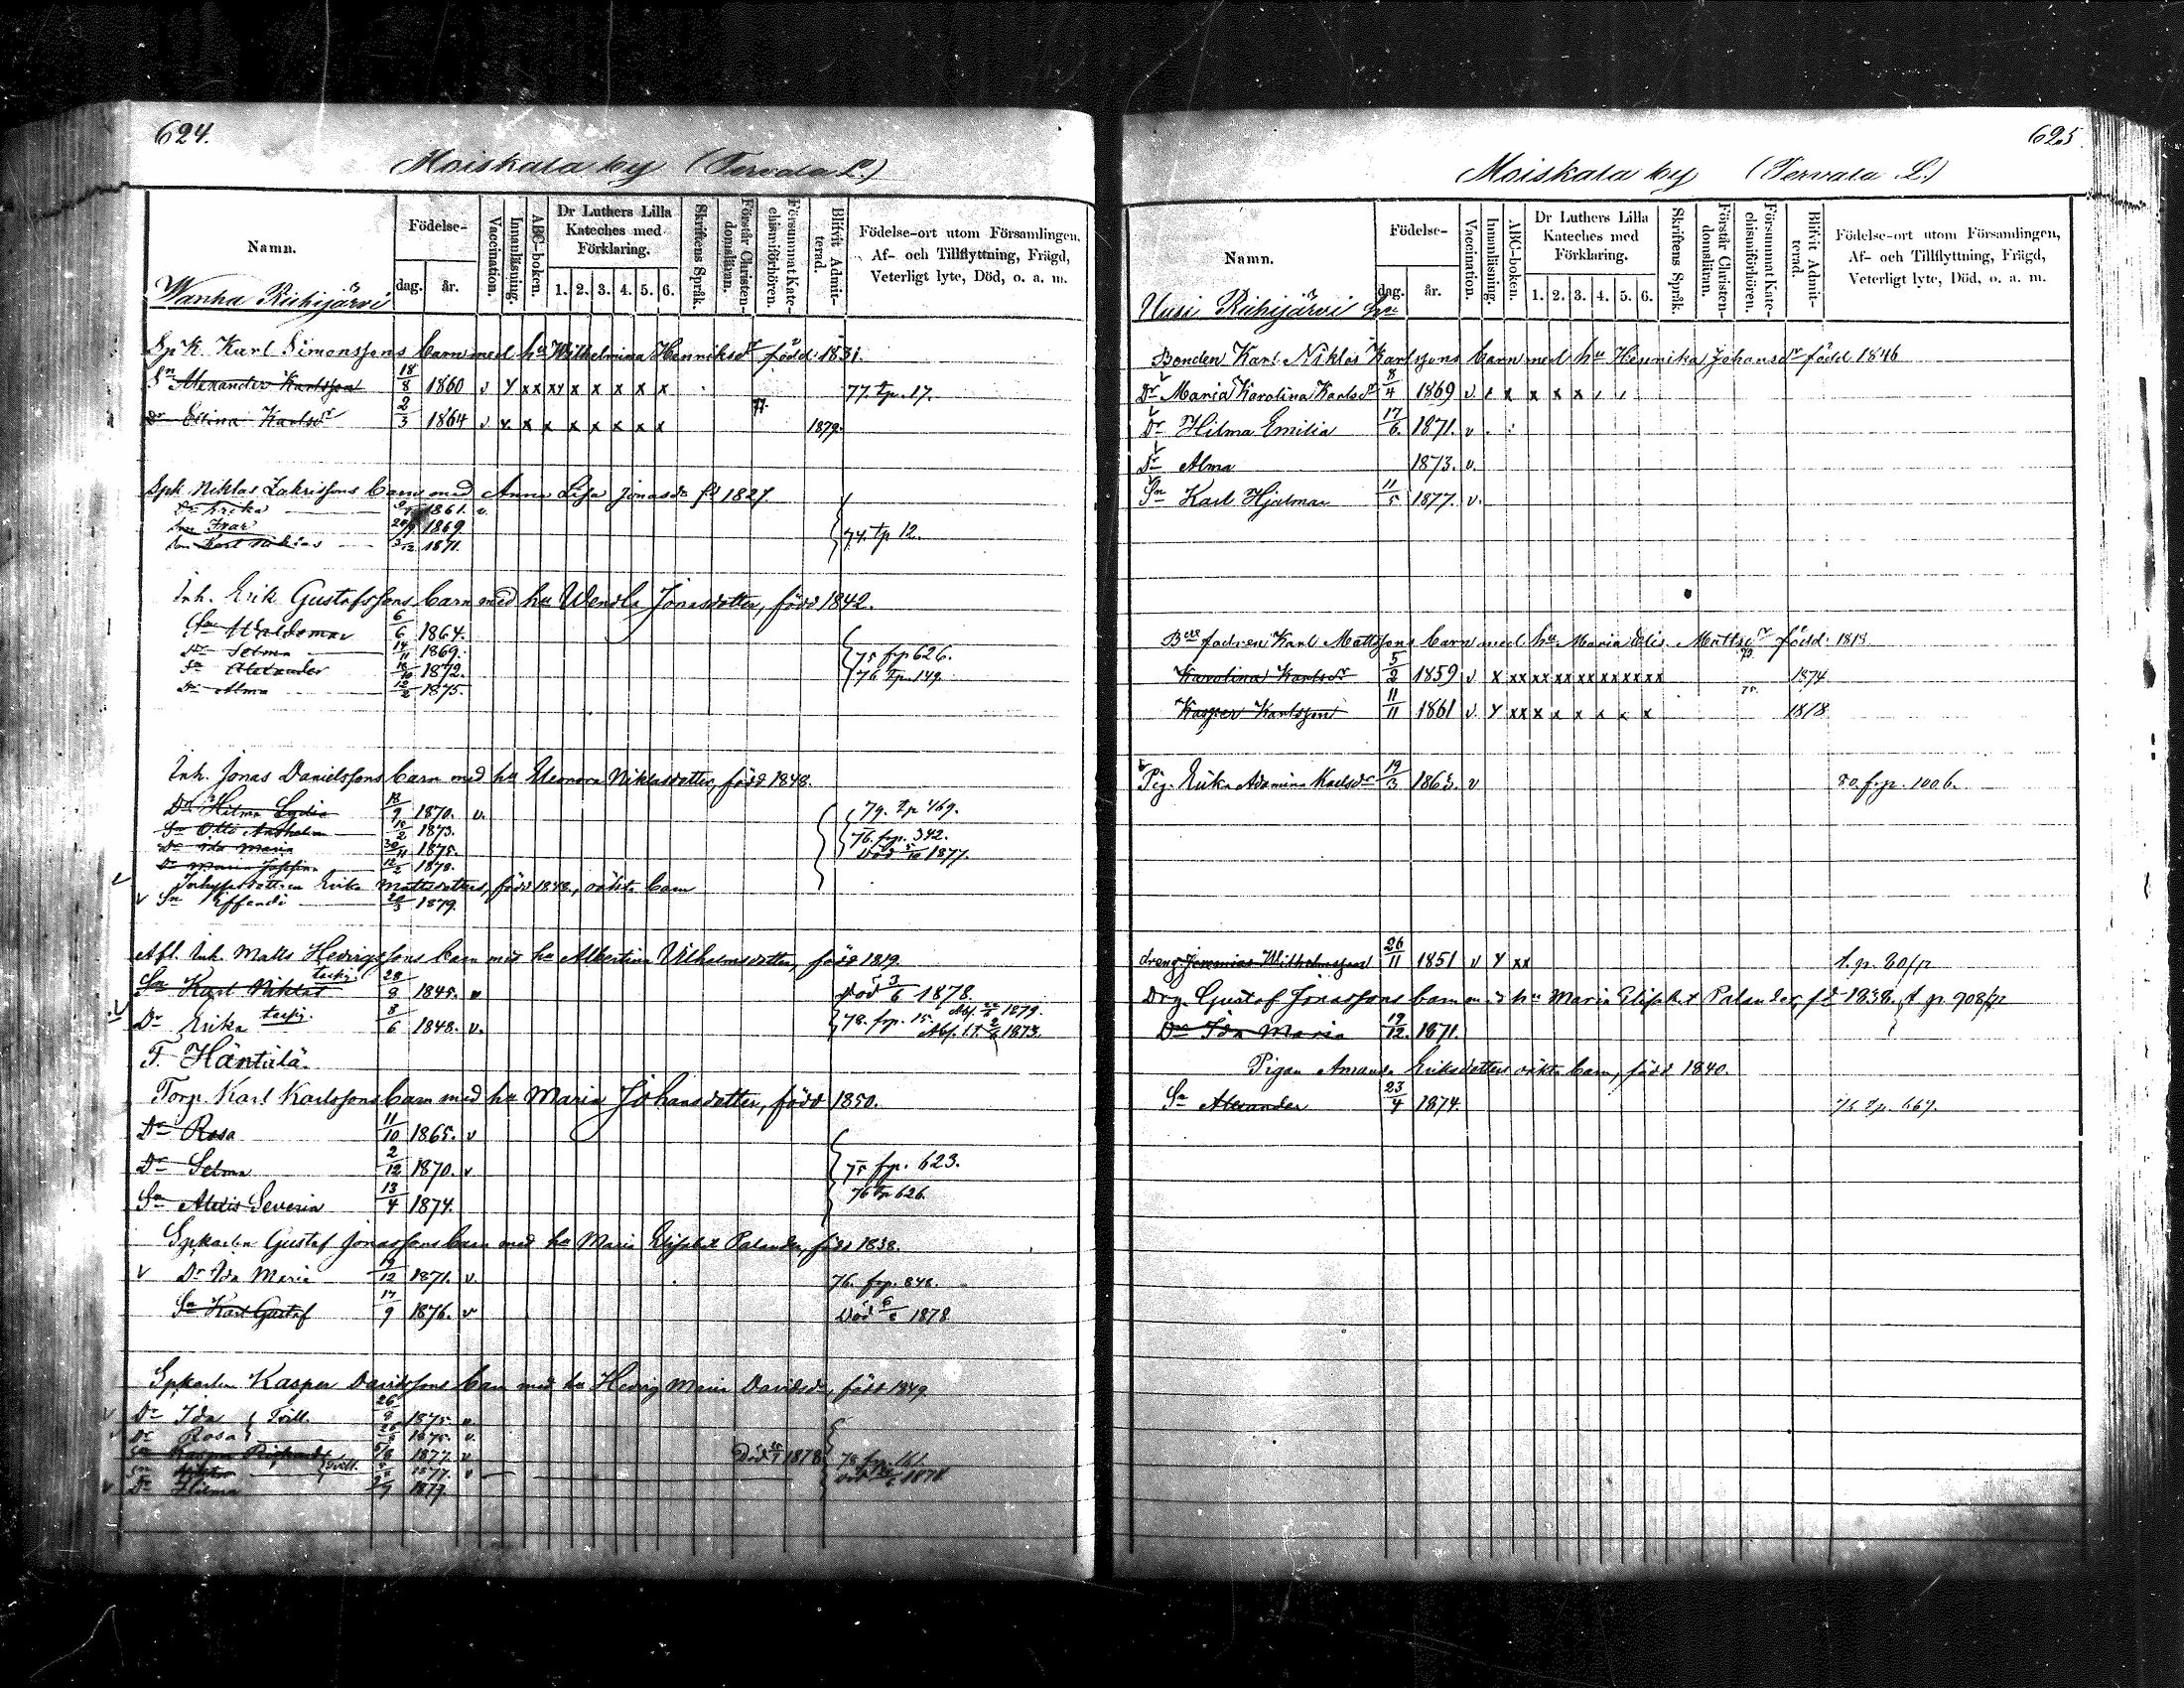 624.
Moiskala by (Tervala L.)
Namn.
Födelse-
dag. år.
Vaccination.
Innanläsning.
ABC-boken.
Dr Luthers Lilla Kateches med Förklaring.
1. 2. 3. 4. 5. 6.
Skriftens Språk.
Förstår Christendomsläran.
Försummat Katechismiförhören.
Blifvit Admitterad.
Födelse-ort utom Församlingen, Af- och Tillflyttning, Frägd, Veterligt lyte, Död, o. a. m.
Wanha Riihijärvi
Spk. Karl Simonssons barn med hu Wilhelmina Henriksdr född 1831.
Sn Alexander Karlsson 18/8 1860 v y xx xy x x x x x 77. tp. 17.
Dr Ellina Karlsdr 2/3 1864 v y x x x x x x x 77. 1879.
Spk Niklas Zakrissons barn med Anna Lisa Jonasdr fd 1827
Dr Erika 1861. v.
Son Ivar 1869
Son Karl Niklas 3/12 1871.
74. tp 12.
Inh. Erik Gustafssons barn med hu Wendla Jonasdotter, född 1842.
Sn Waldemar 6/6 1864.
Dr Selma 14/11 1869.
Sn Alexander 1872.
Dr Alma 12/2 1875.
75 frp 626.
76 tp. 149.
Inh. Jonas Danielssons barn med hu Eleonora Niklasdotter, född 1848.
Dr Hilma Lydia 1870. v.
Sn Otto 1873.
Dr Ida Maria 30/11 1875.
Dr Maria Josefina 12/2 1878.
79. tp 469.
76. frp. 342.
Död 5/10 1877.
Inhysesdottren Erika Mattsdotters, född 1848, oäkta barn
v Sn Effendi 20/3 1879.
Afl. Inh. Matts Hedvigssons barn med hu Albertina Vilhelmsdotter, född 1819.
Sn Karl Niklas 28/8 1845. v Död 3/6 1878.
v Dr Erika 8/6 1848. v. 78. frp. 15. 1879.
1873.
T. Häntälä.
Torp. Karl Karlssons barn med hu Maria Johansdotter, född 1850.
Dr Rosa 11/10 1865. v
Dr Selma 2/12 1870. v 75 frp. 623.
Sn Alexis Severin 13/4 1874. 76 tp 626.
Spkarlen Gustaf Jonassons barn med hu Maria Elisabet Palander, född 1838.
v Dr Ida Maria 19/12 1871. v. 76. frp. 848.
Sn Karl Gustaf 17/9 1876. v Död 1878
Spkarlen Kasper Davidssons barn med hu Hedvig Maria Davidsdr, född 1849
v Dr Ida Tvill. 26/8 1875. v.
v Dr Rosa 1875. v.
Sn Kasper 1877. v Död 1878 78 frp. 161.
Sn Tvill. 1877. v Död 1878
v Dr Hilma 1879.
625.
Moiskala by (Tervala L.)
Namn.
Födelse-
dag. år.
Vaccination.
Innanläsning.
ABC-boken.
Dr Luthers Lilla Kateches med Förklaring.
1. 2. 3. 4. 5. 6.
Skriftens Språk.
Förstår Christendomsläran.
Försummat Katechismiförhören.
Blifvit Admitterad.
Födelse-ort utom Församlingen, Af- och Tillflyttning, Frägd, Veterligt lyte, Död, o. a. m.
Uusi Riihijärvi
Bonden Karl Niklas Karlssons barn med hu Henrika Johansdr född 1846
Dr Maria Karolina Karlsdr 8/4 1869 v.
Dr Hilma Emilia 17/6. 1871. v
Dr Alma 1873. v.
Sn Karl Hjalmar 11/5 1877. v.
Bde fadren Karl Mattssons barn med hu Maria Elis. Mattsdr född: 1813
Karolina Karlsdr 5/2 1859 v x xx xx xx xx xx xx xx 1874
Kasper Karlsson 11/11 1861 v. y xx x x x x x x 75. 1878
Pig. Erika Adamina Karlsdr 19/3 1863. v 80. frp. 1006.
dreng Jeremias Wilhelmsson 26/11 1851 v y xx
Drg. Gustaf Jonassons barn med hu Maria Elisabet Palander, fd 1838.
Dr Ida Maria 19/12. 1871.
Pigan Amanda Eriksdotters oäkta barn, född 1840.
Sn Alexander 23/4 1874. 75 tp. 667.